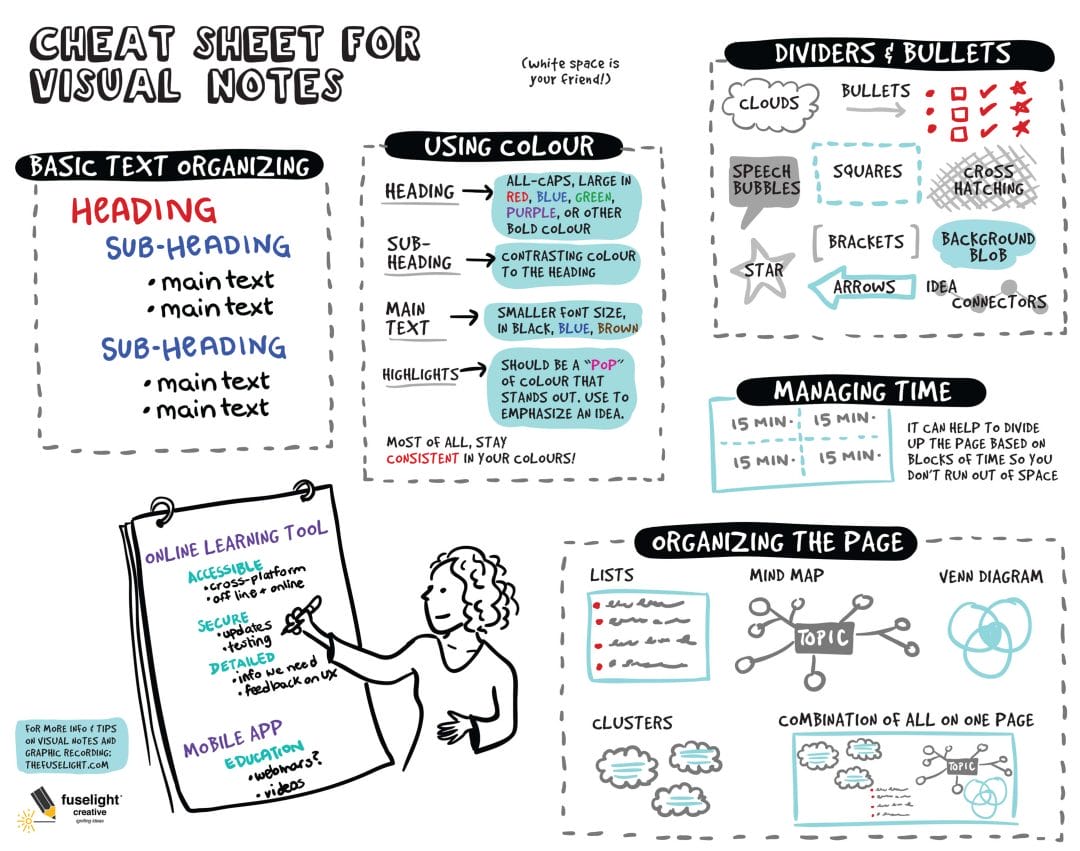 CHEAT SHEET FOR
VISUAL NOTES
(WHITE SPACE IS
YOUR FRIEND!)
BASIC TEXT ORGANIZING
HEADING
SUB-HEADING
• main text
• main text
SUB-HEADING
• main text
• main text
USING COLOUR
HEADING
ALL-CAPS, LARGE IN
RED, BLUE, GREEN,
PURPLE, OR OTHER
BOLD COLOUR
SUB-
HEADING
CONTRASTING COLOUR
TO THE HEADING
MAIN
TEXT
SMALLER FONT SIZE,
IN BLACK, BLUE, BROWN
HIGHLIGHTS
SHOULD BE A "POP"
OF COLOUR THAT
STANDS OUT. USE TO
EMPHASIZE AN IDEA.
MOST OF ALL, STAY
CONSISTENT IN YOUR COLOURS!
DIVIDERS & BULLETS
CLOUDS
BULLETS
SPEECH
BUBBLES
SQUARES
CROSS
HATCHING
STAR
BRACKETS
BACKGROUND
BLOB
ARROWS
IDEA
CONNECTORS
MANAGING TIME
15 MIN. 15 MIN.
15 MIN. 15 MIN.
IT CAN HELP TO DIVIDE
UP THE PAGE BASED ON
BLOCKS OF TIME SO YOU
DON'T RUN OUT OF SPACE
ONLINE LEARNING TOOL
ACCESSIBLE
• cross-platform
• off line + online
SECURE
• updates
• testing
DETAILED
• info we need
• feedback on UX
MOBILE APP
EDUCATION
• webinars?
• videos
ORGANIZING THE PAGE
LISTS
MIND MAP
TOPIC
VENN DIAGRAM
CLUSTERS
COMBINATION OF ALL ON ONE PAGE
TOPIC
FOR MORE INFO & TIPS
ON VISUAL NOTES AND
GRAPHIC RECORDING:
THEFUSELIGHT.COM
fuselight
creative
igniting ideas